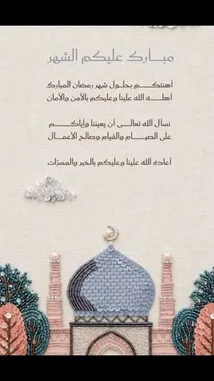 مبارك عليكم الشهر
أهنئكم بحلول شهر رمضان المبارك
أهله الله علينا وعليكم بالأمن والأمان
نسأل الله تعالى أن يعيننا وإياكم
على الصيام والقيام وصالح الأعمال
أعاده الله علينا وعليكم بالخير والمسرات